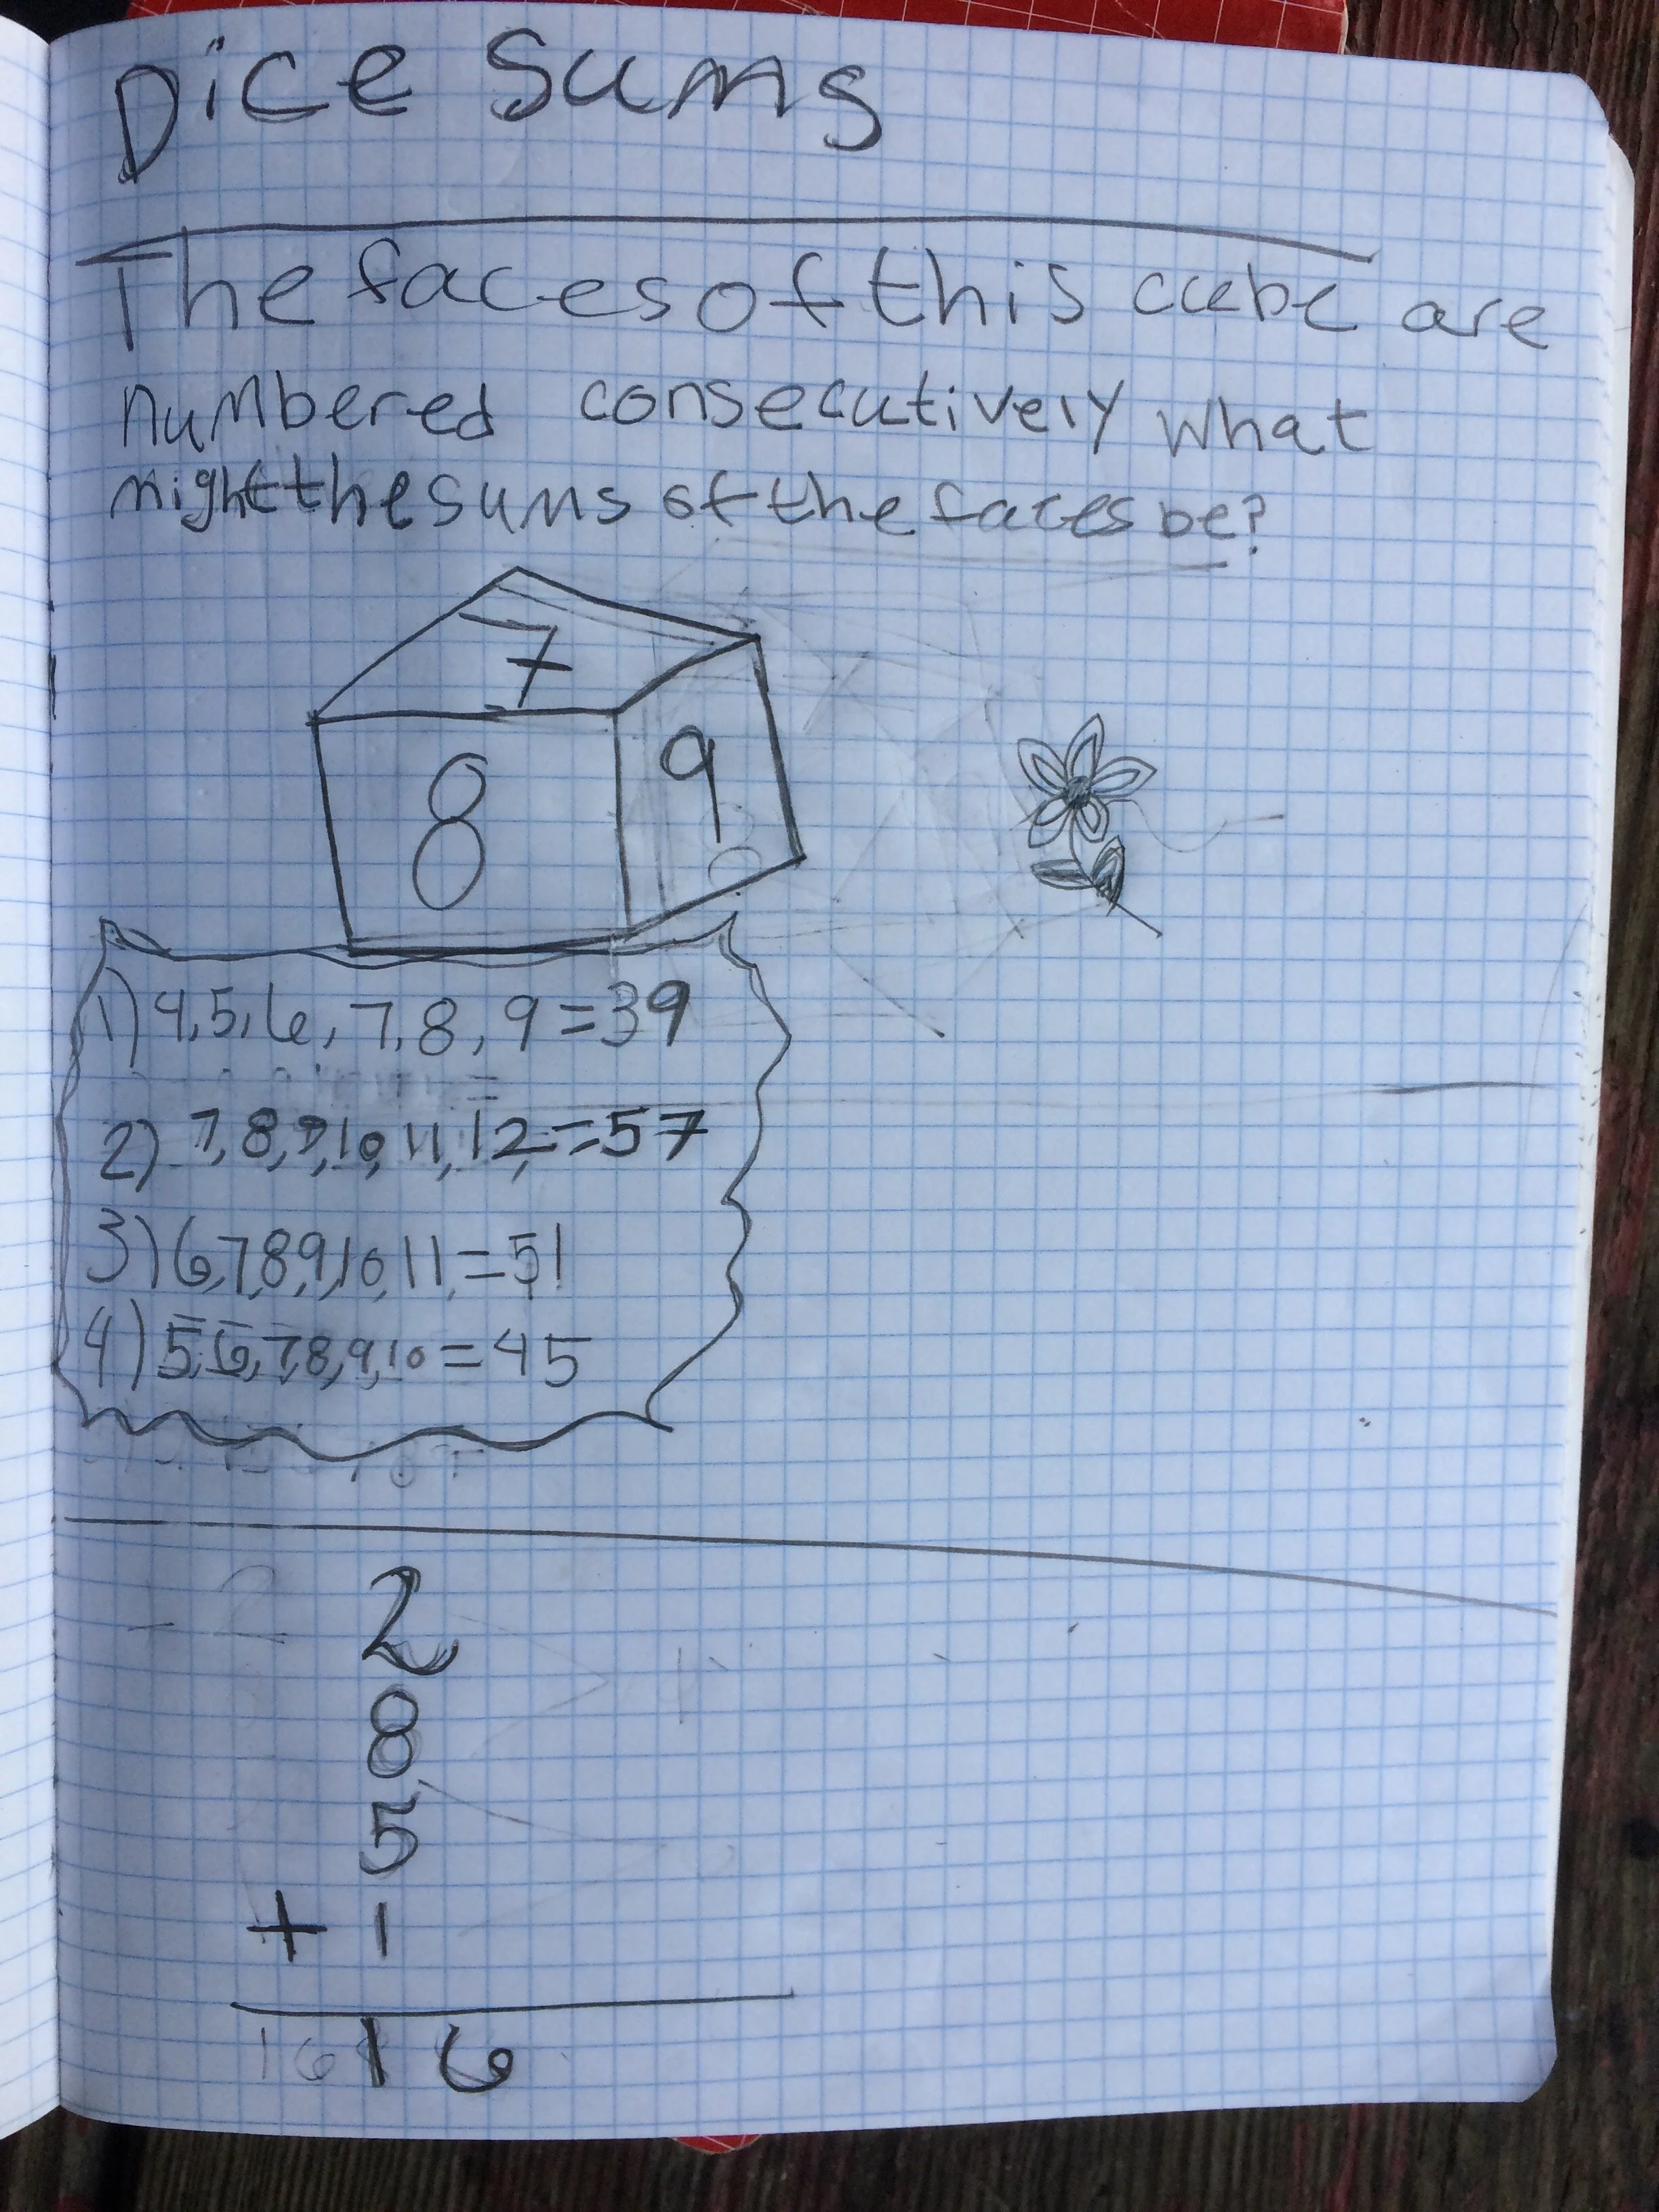 Dice Sums
The faces of this cube are
numbered consecutively what
might the sums of the faces be?
7
8
9
1) 4,5,6,7,8,9=39
2) 7,8,9,10,11,12,=57
3) 6,7,8,9,10,11,=51
4) 5,6,7,8,9,10=45
2
8
5
+ 1
16